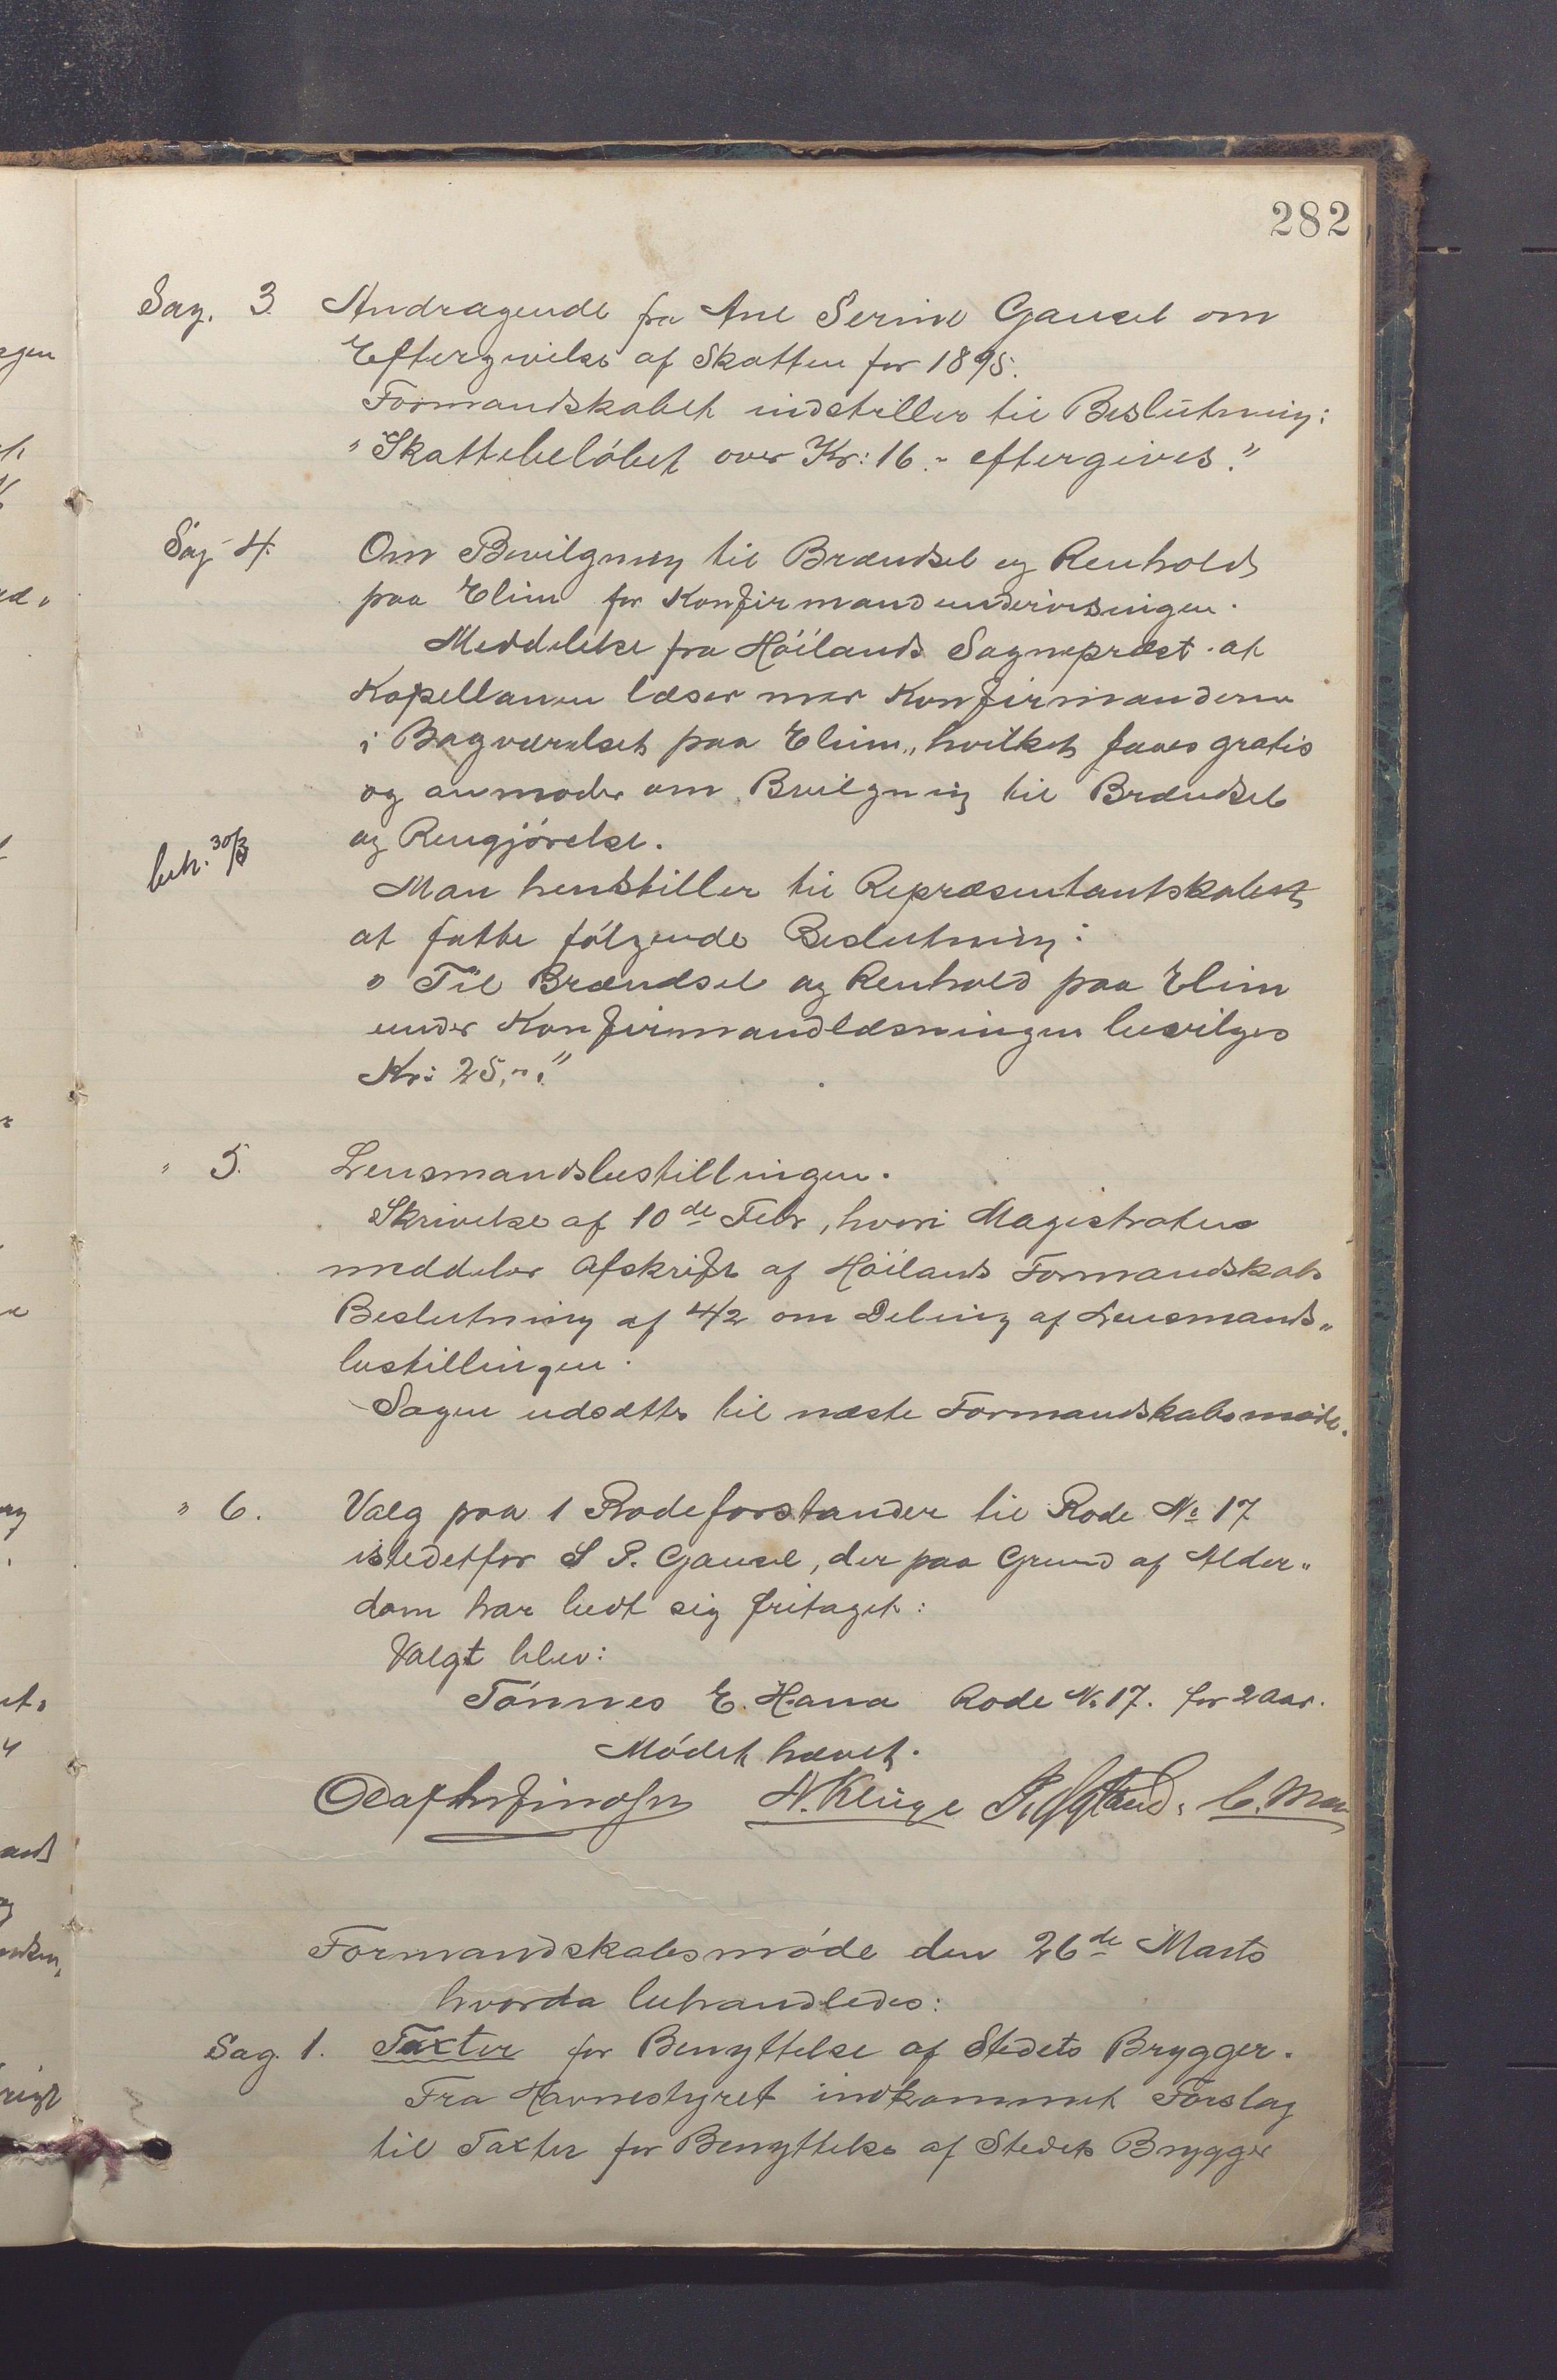 282
Sag. 3. Andragende fra Ane Serine Gausel om
Eftergivelse af Skatten for 1895.
Formandskabet indstiller til Beslutning:
"Skattebeløbet over Kr: 16.- eftergives."
Sag 4. Om Bevilgning til Brændsel og Renhold
paa Elim for Konfirmandundervisningen.
Meddelelse fra Höilands Sognepræst at
Kapellanen læser med Konfirmanderne
i Bagværelset paa Elim, hvilket faaes gratis
og anmoder om Bevilgning til Brændsel
og Rengjørelse.
beh. 30/3
Man henstiller til Repræsentantskabet
at fatte følgende Beslutning:
"Til Brændsel og Renhold paa Elim
under Konfirmandlæsningen bevilges
Kr: 25,-."
" 5. Lensmandsbestillingen.
Skrivelse af 10de Febr, hvori Magistraten
meddeler Afskrift af Höilands Formandskabs
Beslutning af 4/2 om Deling af Lensmands-
bestillingen.
Sagen udsættes til næste Formandskabsmøde.
" 6. Valg paa 1 Rodeforstander til Rode No 17
istedetfor S P. Gausel, der paa Grund af Alder-
dom har bedt sig fritaget:
Valgt blev:
Tönnes E. Hana Rode No 17. for 2 Aar.
Mödet hævet.
H. Kluge
Formandskabsmöde den 26de Marts
hvorda behandledes:
Sag. 1. Taxter for Benyttelse af Stedets Brygger.
Fra Havnestyret indkommet Forslag
til Taxter for Benyttelse af Stedets Brygger